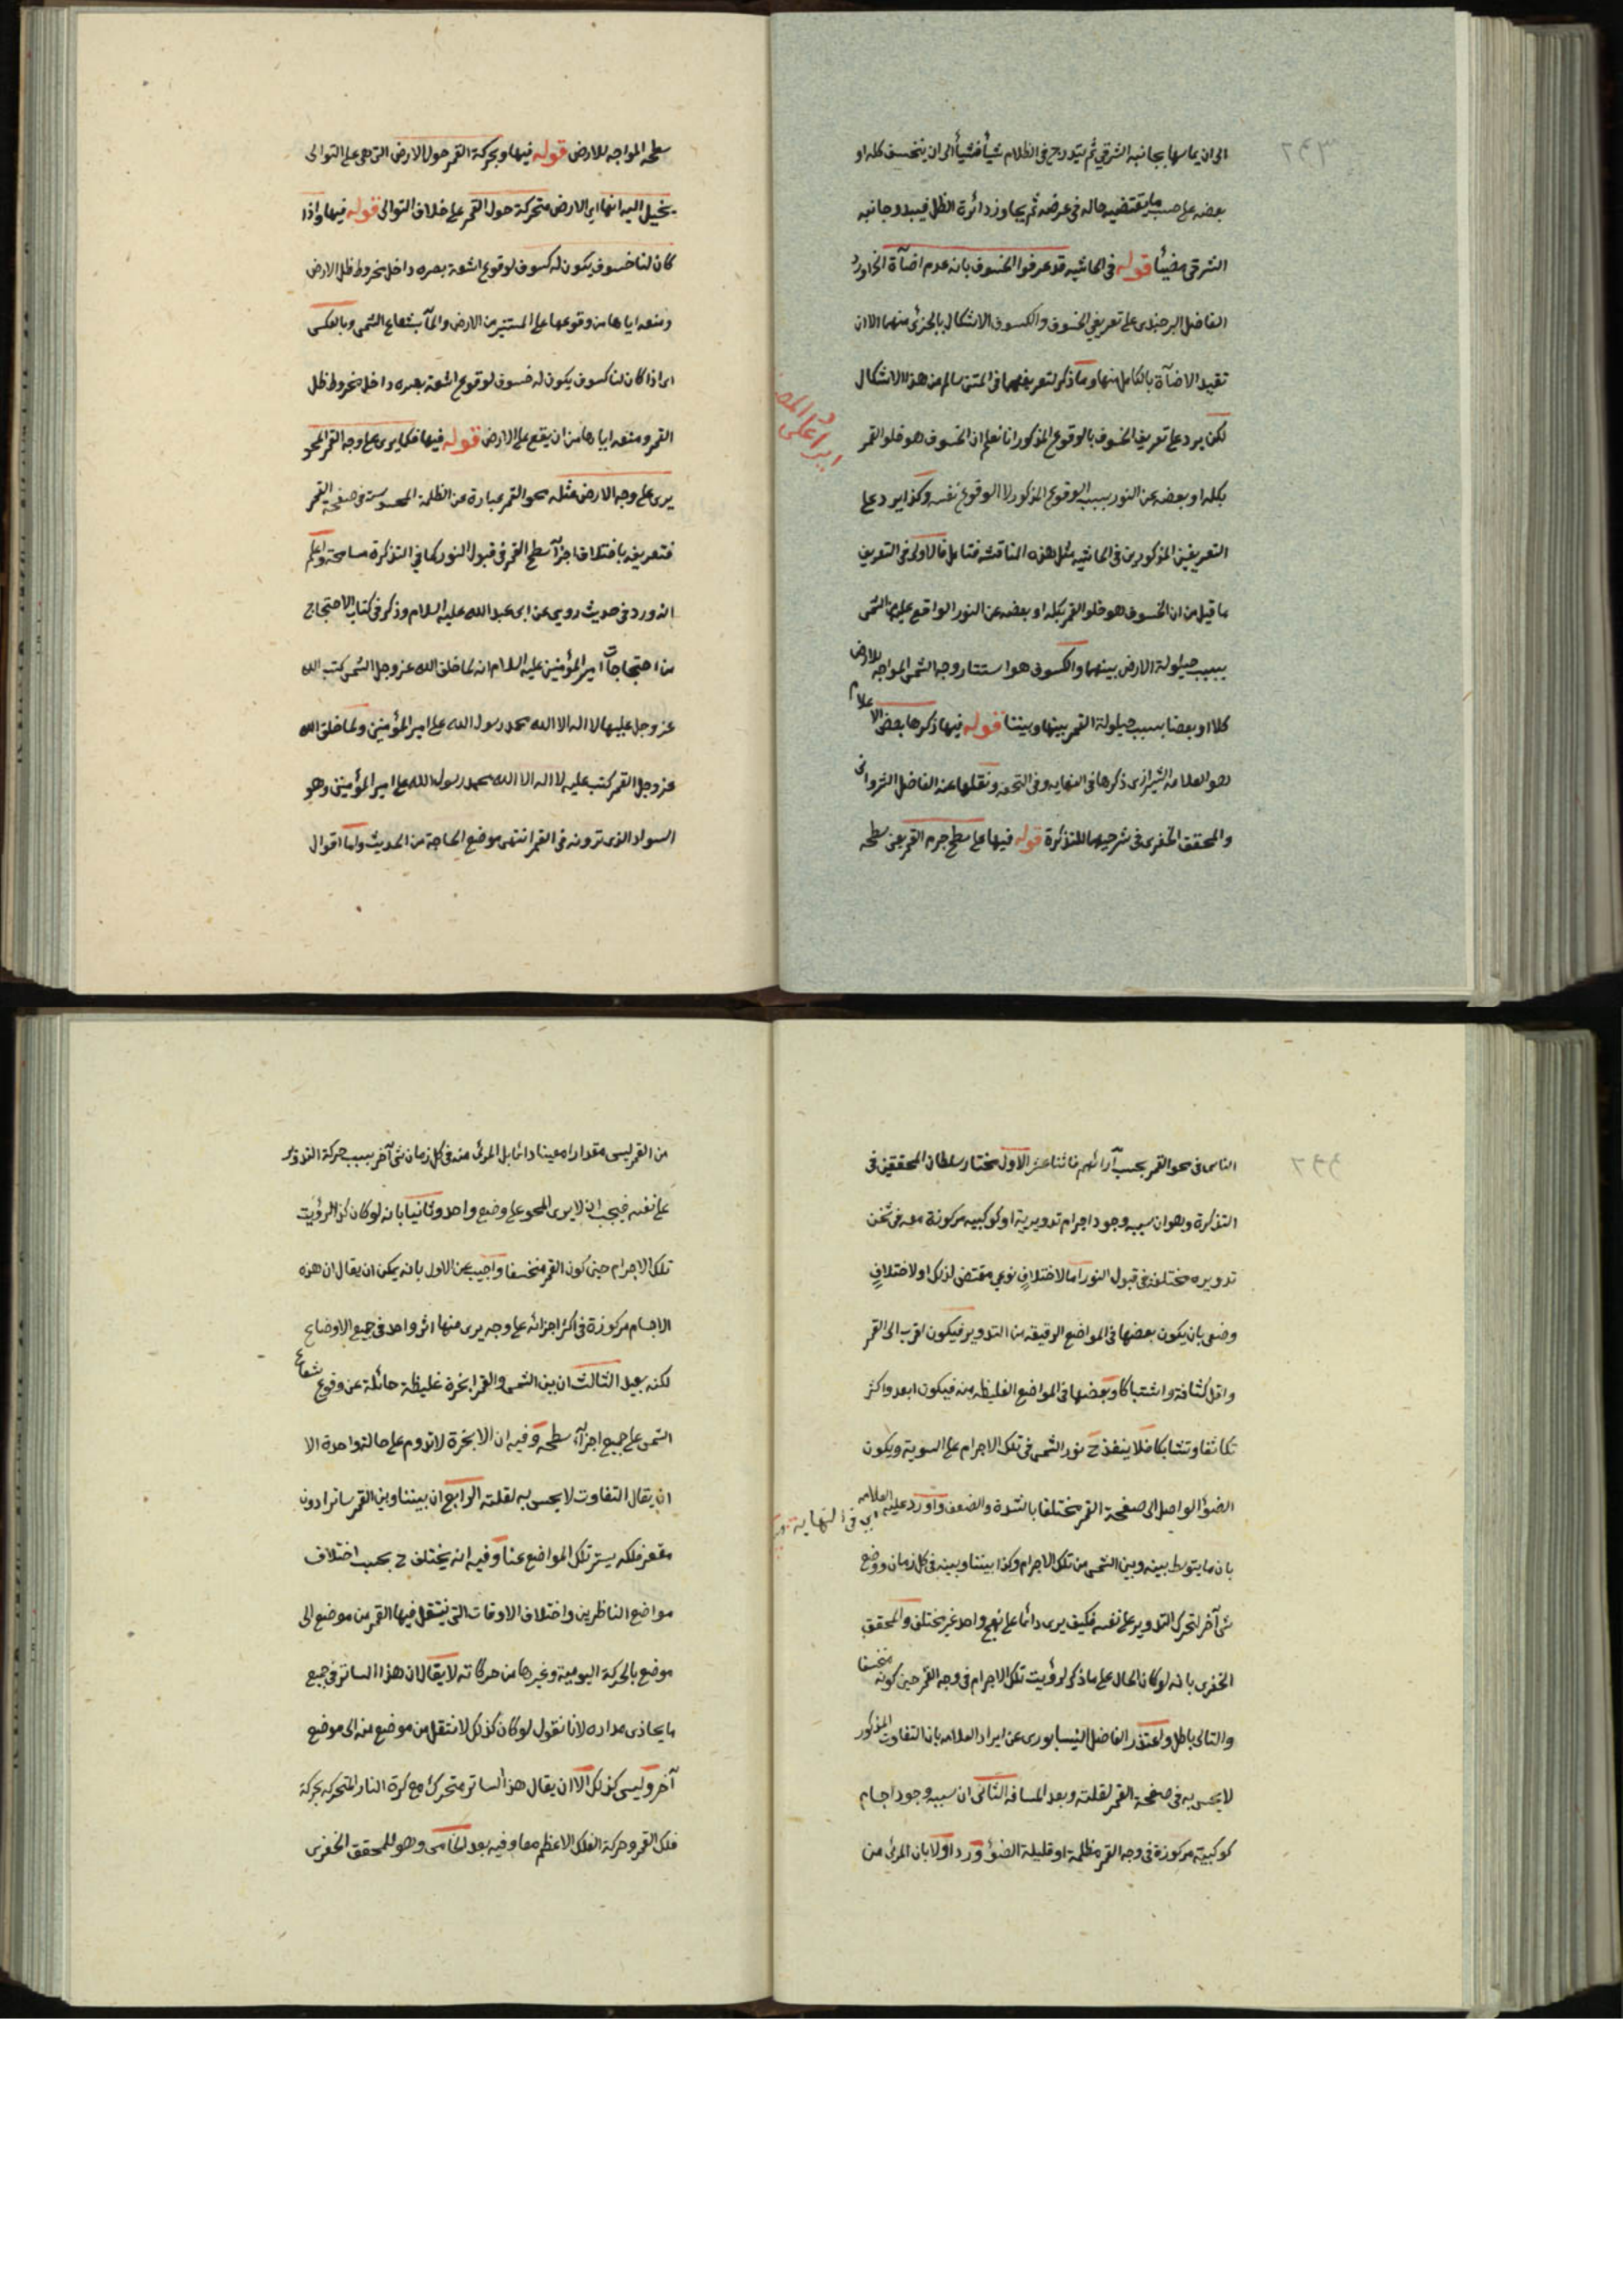 ٢٤٣
الى ان يماسها بجانبه الشرقي ثم يتدرج في الظلام شيأ فشيأ الى ان ينخسف كله او
بعضه على حسب ما يقتضيه حاله في عرضه ثم يجاوز دائرة الظل فيبدو جانبه
الشرقي مضيئا قوله في الحاشيه قد عرفوا الخسوف بانه عدم اضآة الخ اورد
الفاضل البرجندى على تعريفي الخسوف والكسوف الاشكال بالجزئى منهما الا ان
تقيد الاضآة بالكامل منها وما ذكر لتعريفهما في المتن سالم من هذا الاشكال
لكن يرد على تعريف الخسوف بالوقوع المذكور انا نعلم ان الخسوف هو خلو القمر
بكله او بعضه عن النور بسبب الوقوع المذكور لا الوقوع نفسه وكذا يرد على
التعريفين المذكورين في الحاشيه مثل هذه المناقشه فتامل فالاولى في التعريف
ما قيل من ان الخسوف هو خلو القمر بكله او بعضه عن النور الواقع عليه من الشمس
بسبب حيلولة الارض بينهما والكسوف هو استتار وجه الشمس المواجه للارض
كلا او بعضا بسبب حيلولة القمر بينها وبيننا قوله فيها ذكرها بعض الاعلام
هو العلامه الشيرازى ذكرها في النهايه وفى التحفه ونقلها عنه الفاضل الشروانى
والمحقق الخفرى في شرحيهما للتذكرة قوله فيها على سطح جرم القمر يعنى سطحه
سطحه المواجه للارض قوله فيها وبحركة القمر حول الارض التي هى على التوالى
يخيل اليه انها اى الارض متحركة حول القمر على خلاف التوالى قوله فيها واذا
كان لنا خسوف يكون له كسوف لوقوع اشعة بصره داخل مخروط ظل الارض
ومنعه اياها من وقوعها على المستنير من الارض والمآ بشعاع الشمس وبالعكس
اى اذا كان لنا كسوف يكون له خسوف لوقوع اشعة بصره داخل مخروط ظل
القمر ومنعه اياها من ان يقع على الارض قوله فيها فكما يرى على وجه القمر المحو
يرى على وجه الارض مثله محو القمر عبارة عن الظلمة المحسوسة في صفحة القمر
فتعريفه باختلاف اجزآ سطح القمر في قبول النور كما في التذكرة مسامحة واعلم
انه ورد في حديث روى عن ابى عبد الله عليه السلام وذكر في كتاب الاحتجاج
من احتجاجات امير المؤمنين عليه السلام انه لما خلق الله عز وجل الشمس كتب الله
عز وجل عليها لا اله الا الله محمد رسول الله على امير المؤمنين ولما خلق الله
عز وجل القمر كتب عليه لا اله الا الله محمد رسول الله على امير المؤمنين وهو
السواد الذى ترونه في القمر انتهى موضع الحاجة من الحديث واما اقوال
٢٤٤
الناس في محو القمر بحسب آرائهم فاثنا عشر الاول مختار سلطان المحققين في
التذكرة وهو ان سببه وجود اجرام تدويرية او كوكبيه مركوزة معه في ثخن
تدويره مختلفة في قبول النور اما لاختلاف نوعي مقتض لذلك او لاختلاف
وضعى بان يكون بعضها في المواضع الرقيقه من التدوير فيكون اقرب الى القمر
واقل كثافة واشتباكا وبعضها في المواضع الغليظه منه فيكون ابعد واكثر
تكاثفا وتشابكا فلا ينفذ ح نور الشمس في تلك الاجرام على السوية ويكون
الضوؤ الواصل الى صفحة القمر مختلفا بالشدة والضعف واورد عليه العلامه
في النهاية
بان ما يتوسط بينه وبين الشمس من تلك الاجرام وكذا بيننا وبينه في كل زمان ووضع
شئ آخر لتحرك التدوير على نفسه فكيف يرى دائما على نهج واحد غير مختلف والمحقق
الخفرى بانه لو كان الحال على ما ذكر لرؤيت تلك الاجرام في وجه القمر حين كونه منخسفا
والتالى باطل واعتذر الفاضل النيسابورى عن ايراد العلامه بان التفاوت المذكور
لا يحس به في صفحة القمر لقلته وبعد المسافه الثانى ان سببه وجود اجسام
كوكبيه مركوزة في وجه القمر مظلمة او قليلة الضوؤ ورد اولا بان المرئى من
من القمر ليس مقدارا معينا دائما بل المرئى منه في كل زمان شئ آخر بسبب حركة التدوير
على نفسه فيجب ان لا يرى المحو على وضع واحد وثانيا بانه لو كان كذا لرؤيت
تلك الاجرام حين كون القمر منخسفا واجيب عن الاول بانه يمكن ان يقال ان هذه
الاجسام مركوزة في اكثر اجزائه على وجه يرى منها اثر واحد في جميع الاوضاع
لكنه بعيد الثالث ان بين الشمس والقمر ابخرة غليظة حائلة عن وقوع شعاع
الشمس على جميع اجزآء سطحه وفيه ان الابخرة لا تدوم على حالة واحدة الا
ان يقال التفاوت لا يحس به لقلته الرابع ان بيننا وبين القمر ساترا دون
مقعر فلكه يستر تلك المواضع عنا وفيه انه يختلف ح بحسب اختلاف
مواضع الناظرين واختلاف الاوقات التى ينتقل فيها القمر من موضع الى
موضع بالحركة اليومية وغيرها من حركاته لا يقال ان هذا الساتر في جميع
ما يحاذى مداره لانا نقول لو كان كذلك لانتقل من موضع منه الى موضع
آخر وليس كذلك الا ان يقال هذا الساتر متحرك مع كرة النار المتحركه بحركة
فلك القمر وحركة الفلك الاعظم معا وفيه بعد الخامس وهو للمحقق الخفرى